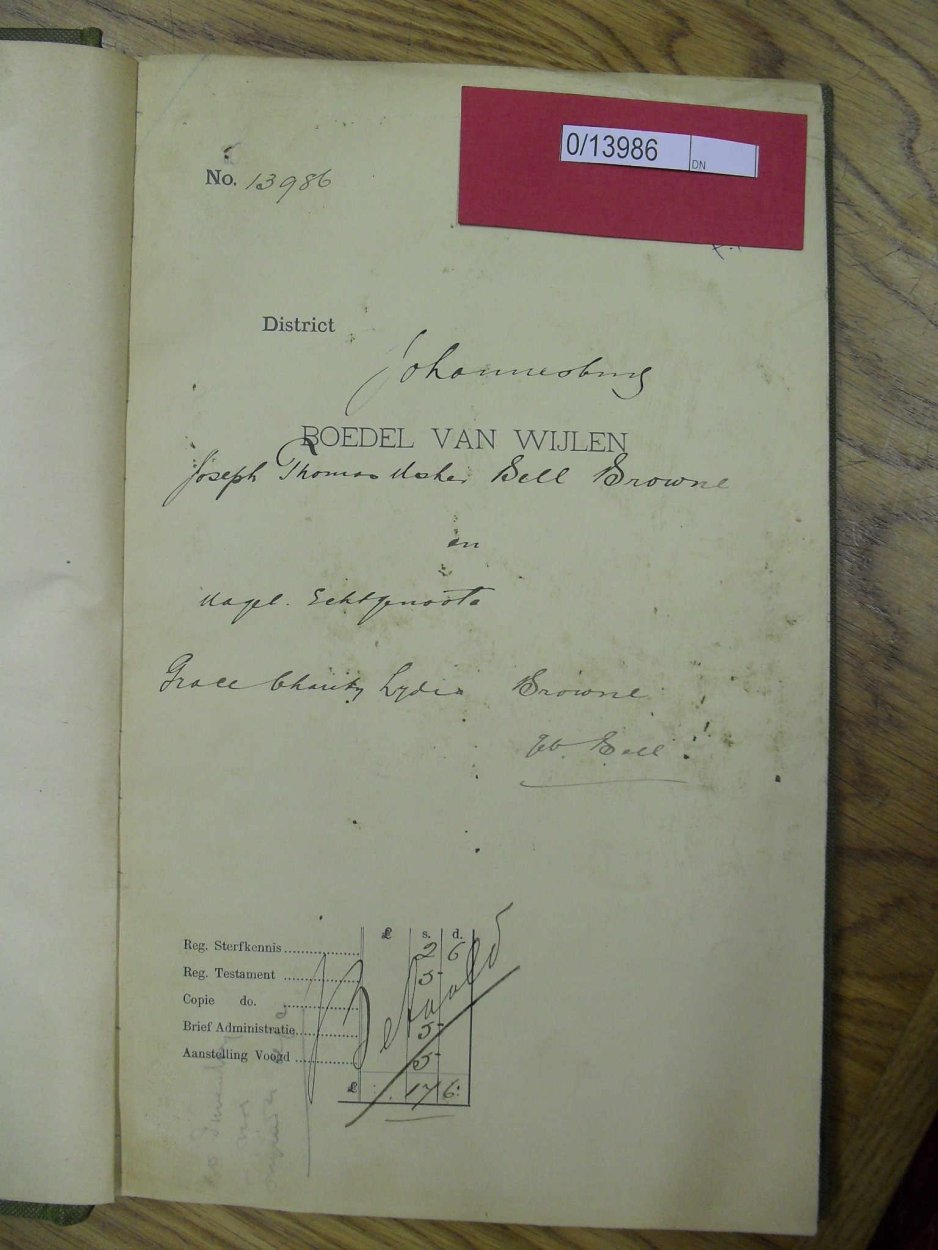 0/13986 DN
No. 13986
District
Johannesburg
BOEDEL VAN WIJLEN
Joseph Thomas Usher Bell Browne
en
Nagel. Echtgenoote
Grace Charity Lydia Browne
geb. Bell
£ s. d.
Reg. Sterfkennis 2 6
Reg. Testament 5-
Copie do.
Brief Administratie 5-
Aanstelling Voogd 5-
£ : 17 6:
Betaald